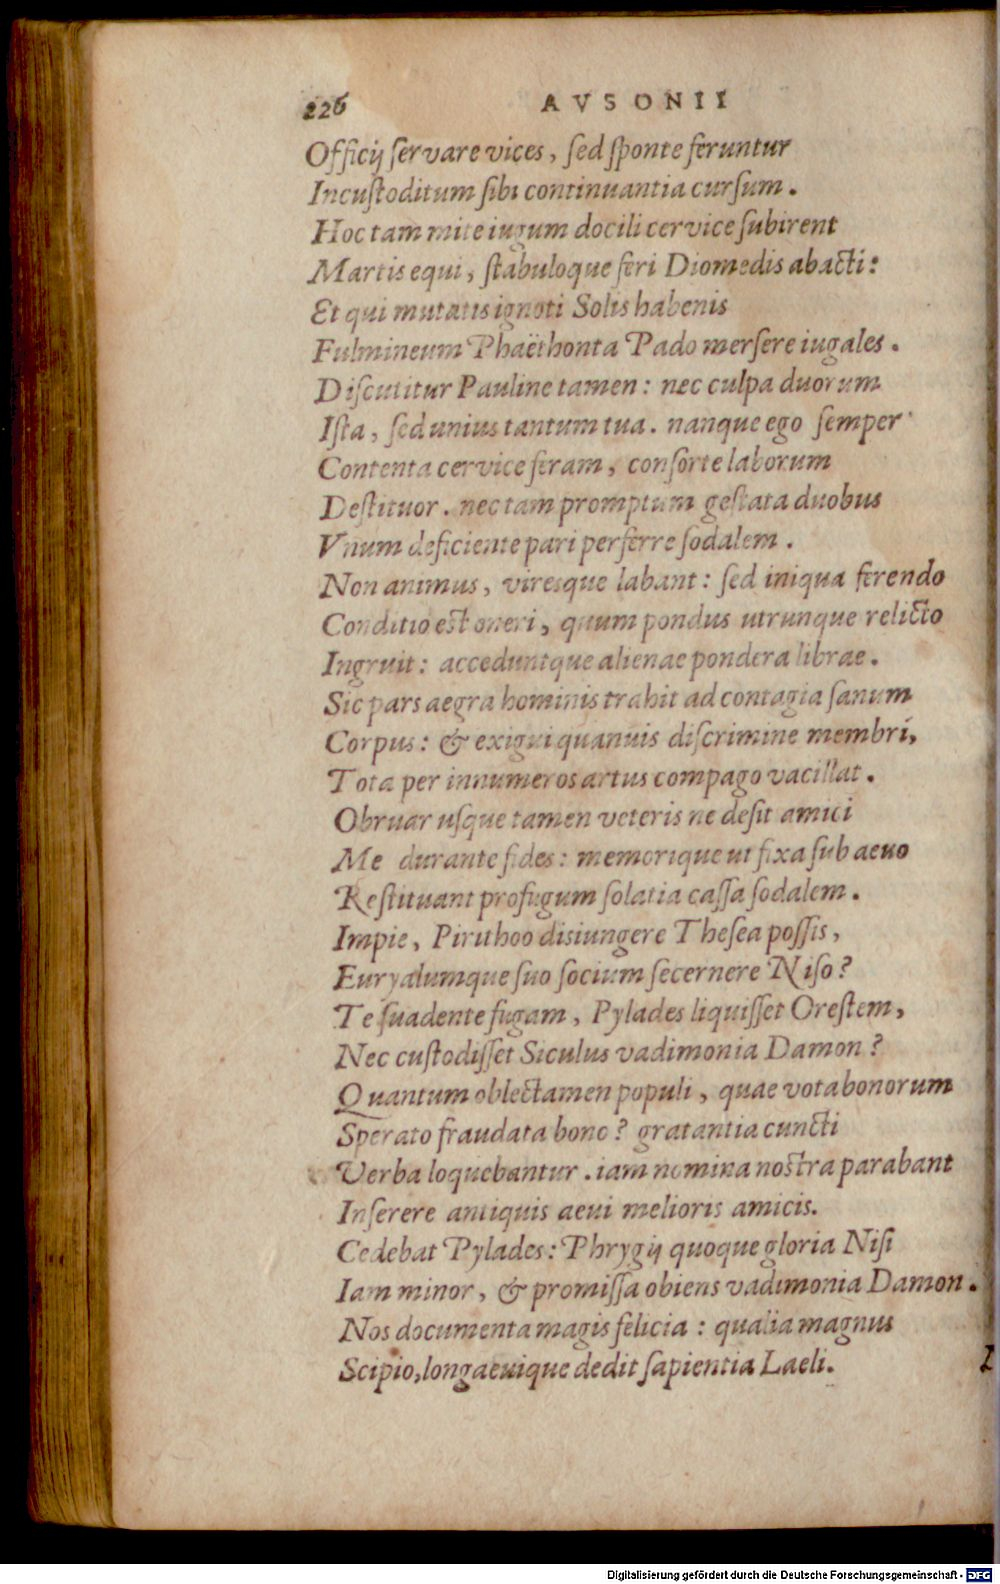 226 AVSONII
Officij servare vices, sed sponte feruntur
Incustoditum sibi continuantia cursum.
Hoc tam mite iugum docili cervice subirent
Martis equi, stabuloque feri Diomedis abacti:
Et qui mutatis ignoti Solis habenis
Fulmineum Phaëthonta Pado mersere iugales.
Discutitur Pauline tamen: nec culpa duorum
Ista, sed unius tantum tua. nanque ego semper
Contenta cervice feram, consorte laborum
Destituor. nec tam promptum gestata duobus
Vnum deficiente pari perferre sodalem.
Non animus, viresque labant: sed iniqua ferendo
Conditio est oneri, quum pondus utrunque relicto
Ingruit: acceduntque alienae pondera librae.
Sic pars aegra hominis trahit ad contagia sanum
Corpus: & exigui quanuis discrimine membri,
Tota per innumeros artus compago vacillat.
Obruar usque tamen veteris ne desit amici
Me durante fides: memorique ut fixa sub aevo
Restituant profugum solatia cassa sodalem.
Impie, Pirithoo disiungere Thesea possis,
Euryalumque suo socium secernere Niso?
Te suadente fugam, Pylades liquisset Orestem,
Nec custodisset Siculus vadimonia Damon?
Quantum oblectamen populi, quae vota bonorum
Sperato fraudata bono? gratantia cuncti
Verba loquebantur. iam nomina nostra parabant
Inserere antiquis aevi melioris amicis.
Cedebat Pylades: Phrygij quoque gloria Nisi
Iam minor, & promissa obiens vadimonia Damon.
Nos documenta magis felicia: qualia magnus
Scipio, longaevique dedit sapientia Laeli.
Digitalisierung gefördert durch die Deutsche Forschungsgemeinschaft - DFG